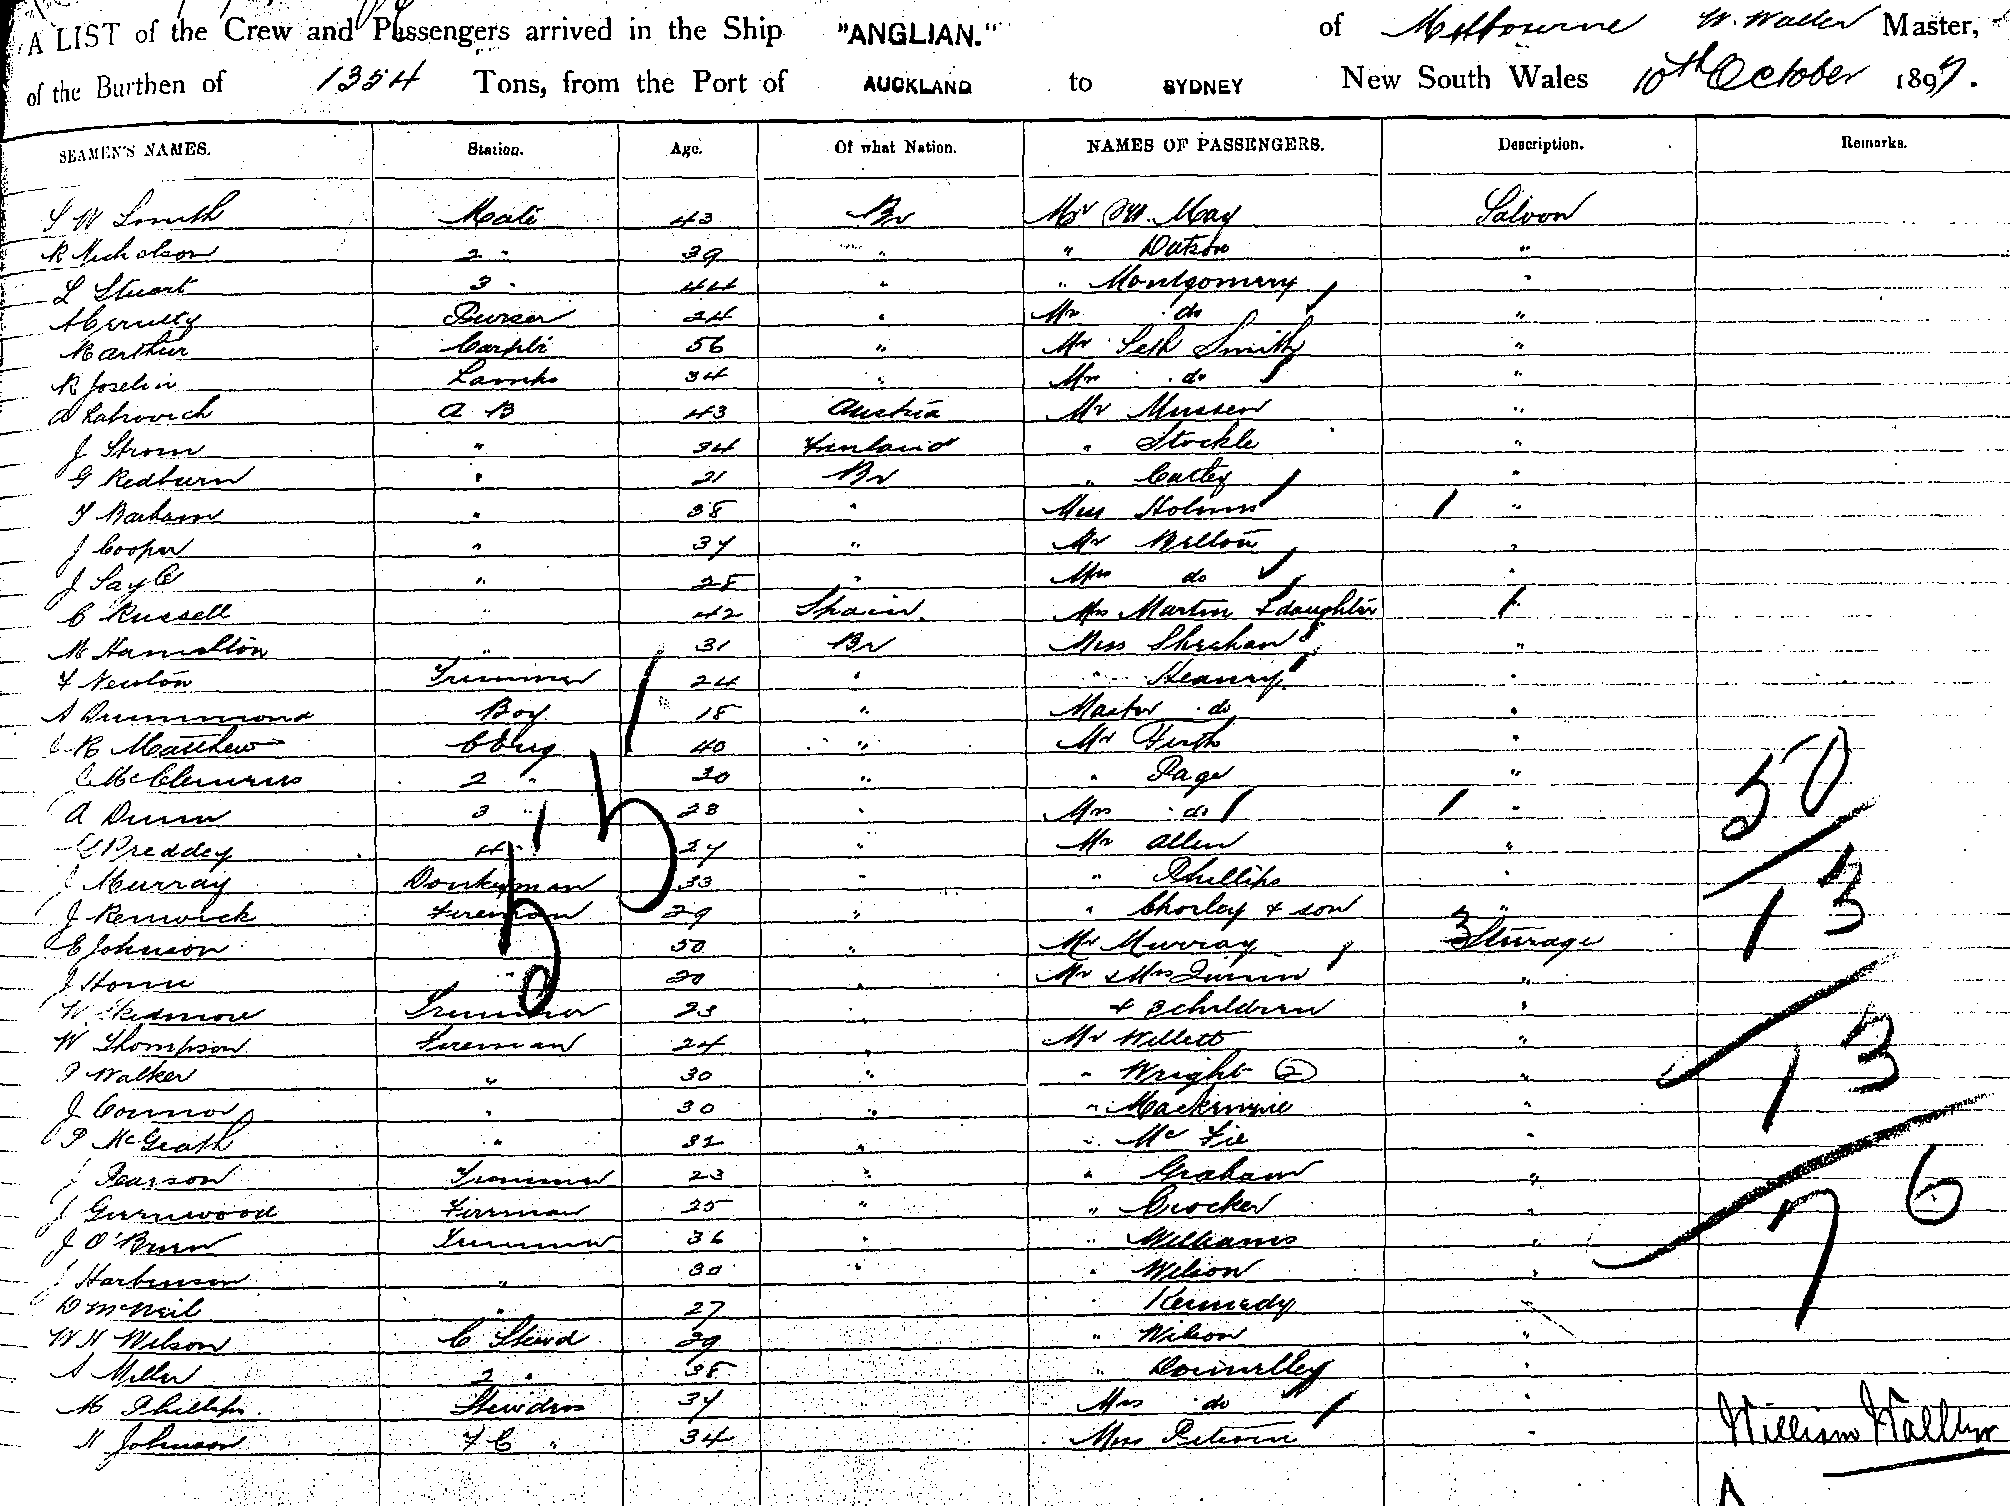 A LIST of the Crew and Passengers arrived in the Ship "ANGLIAN." of Melbourne W. Waller Master,
of the Burthen of 1354 Tons, from the Port of AUCKLAND to SYDNEY New South Wales 10th October 1897.
SEAMEN'S NAMES. Station. Age. Of what Nation. NAMES OF PASSENGERS. Description. Remarks.
S W Smith Mate 43 Br Mr May Saloon
R Nicholson 2 " 39 " " Datson "
L Stuart 3 " 44 " " Montgomery "
Purser 24 " Mrs do "
R Arthur 56 " Mr Seth Smith "
R Joselin Lamps 34 " Mrs do "
A B 43 Austria Mr "
J Strom " 34 Finland " Stockle "
G Redburn " 21 Br " "
T Barham " 38 " Miss Holmes "
J Cooper " 37 " Mr "
J Sayle " 28 " Mrs do "
C Russell " 42 Spain. Mrs Martin & daughter "
M Hamilton " 31 Br Miss Sheehan "
F Newton Trimmer 24 " " "
A Drummond Boy 18 " Master do "
R Matthew C Eng 40 " Mr Firth "
McClemens 2 " 30 " " Page "
A Dunn 3 " 28 " Mrs do "
G Preddey 4 " 27 " Mr Allen " 50
J Murray Donkeyman 33 " " Phillips "
J Renwick Fireman 29 " " Chorley & son " 13
C Johnson " 50 " Mr Murray 3 Sturage
J Horne " 30 " Mr & Mrs Quinn "
W Skidmore Trimmer 23 " & 3 children "
W Thompson Fireman 24 " Mr Willett "
P Walker " 30 " " Wright 2 " 13
J Connor " 30 " " Mackenzie "
P McGrath " 32 " " Mc Fie "
J Pearson Trimmer 23 " " Graham "
J Greenwood Fireman 25 " " Crocker " 76
J O'Brien Trimmer 36 " " Williams "
J Harbinson " 30 " " Wilson "
D McNeil " 27 " Kennedy "
W H Wilson C Stewd 29 " Wilson "
A Miller 2 " 38 " Donnelley "
M Phillips Stewdess 37 Mrs do "
H Johnson F C " 34 Miss "
William Waller